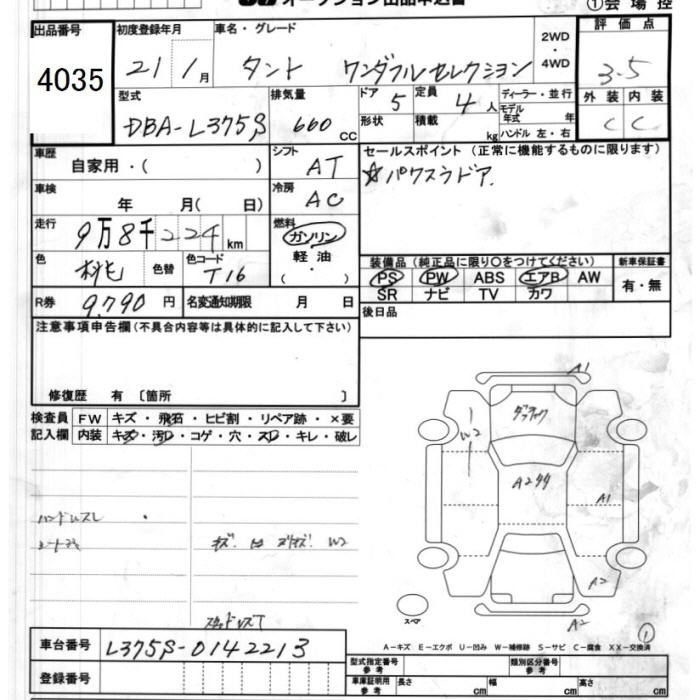 オークション出品申込書 ①会場控
出品番号 4035
初度登録年月 21年 1月
車名・グレード タント ワンダフルセレクション
2WD・4WD
評価点 3.5
外装 内装 C C
型式 DBA-L375S
排気量 660 CC
ドア 5 定員 4人
形状 積載 kg
ディーラー・並行
モデル年式 年
ハンドル 左・右
車歴 自家用・( )
シフト AT
セールスポイント(正常に機能するものに限ります)
☆パワスラドア.
車検 年 月( 日)
冷房 AC
走行 9万8千224 km
燃料 ガソリン 軽油 ( ・ )
色 桃色 色替 色コード T16
装備品(純正品に限り○をつけてください)
PS PW ABS エアB AW
SR ナビ TV カワ
新車保証書 有・無
R券 9,790円 名変通知期限 月 日
後日品
注意事項申告欄(不具合内容等は具体的に記入して下さい)
修復歴 有〔箇所 〕
検査員記入欄
FW キズ・飛石・ヒビ割・リペア跡・×要
内装 キズ・汚レ・コゲ・穴・スレ・キレ・破レ
ハンドルスレ
W2
A1
A2
A1
A2
A2
スペア
①
A-キズ E-エクボ U-凹み W-補修跡 S-サビ C-腐食 XX-交換済
車台番号 L375S-0142213
登録番号
型式指定番号 参考 類別区分番号 参考
車庫証明用 参考 長さ cm 幅 cm 高さ cm